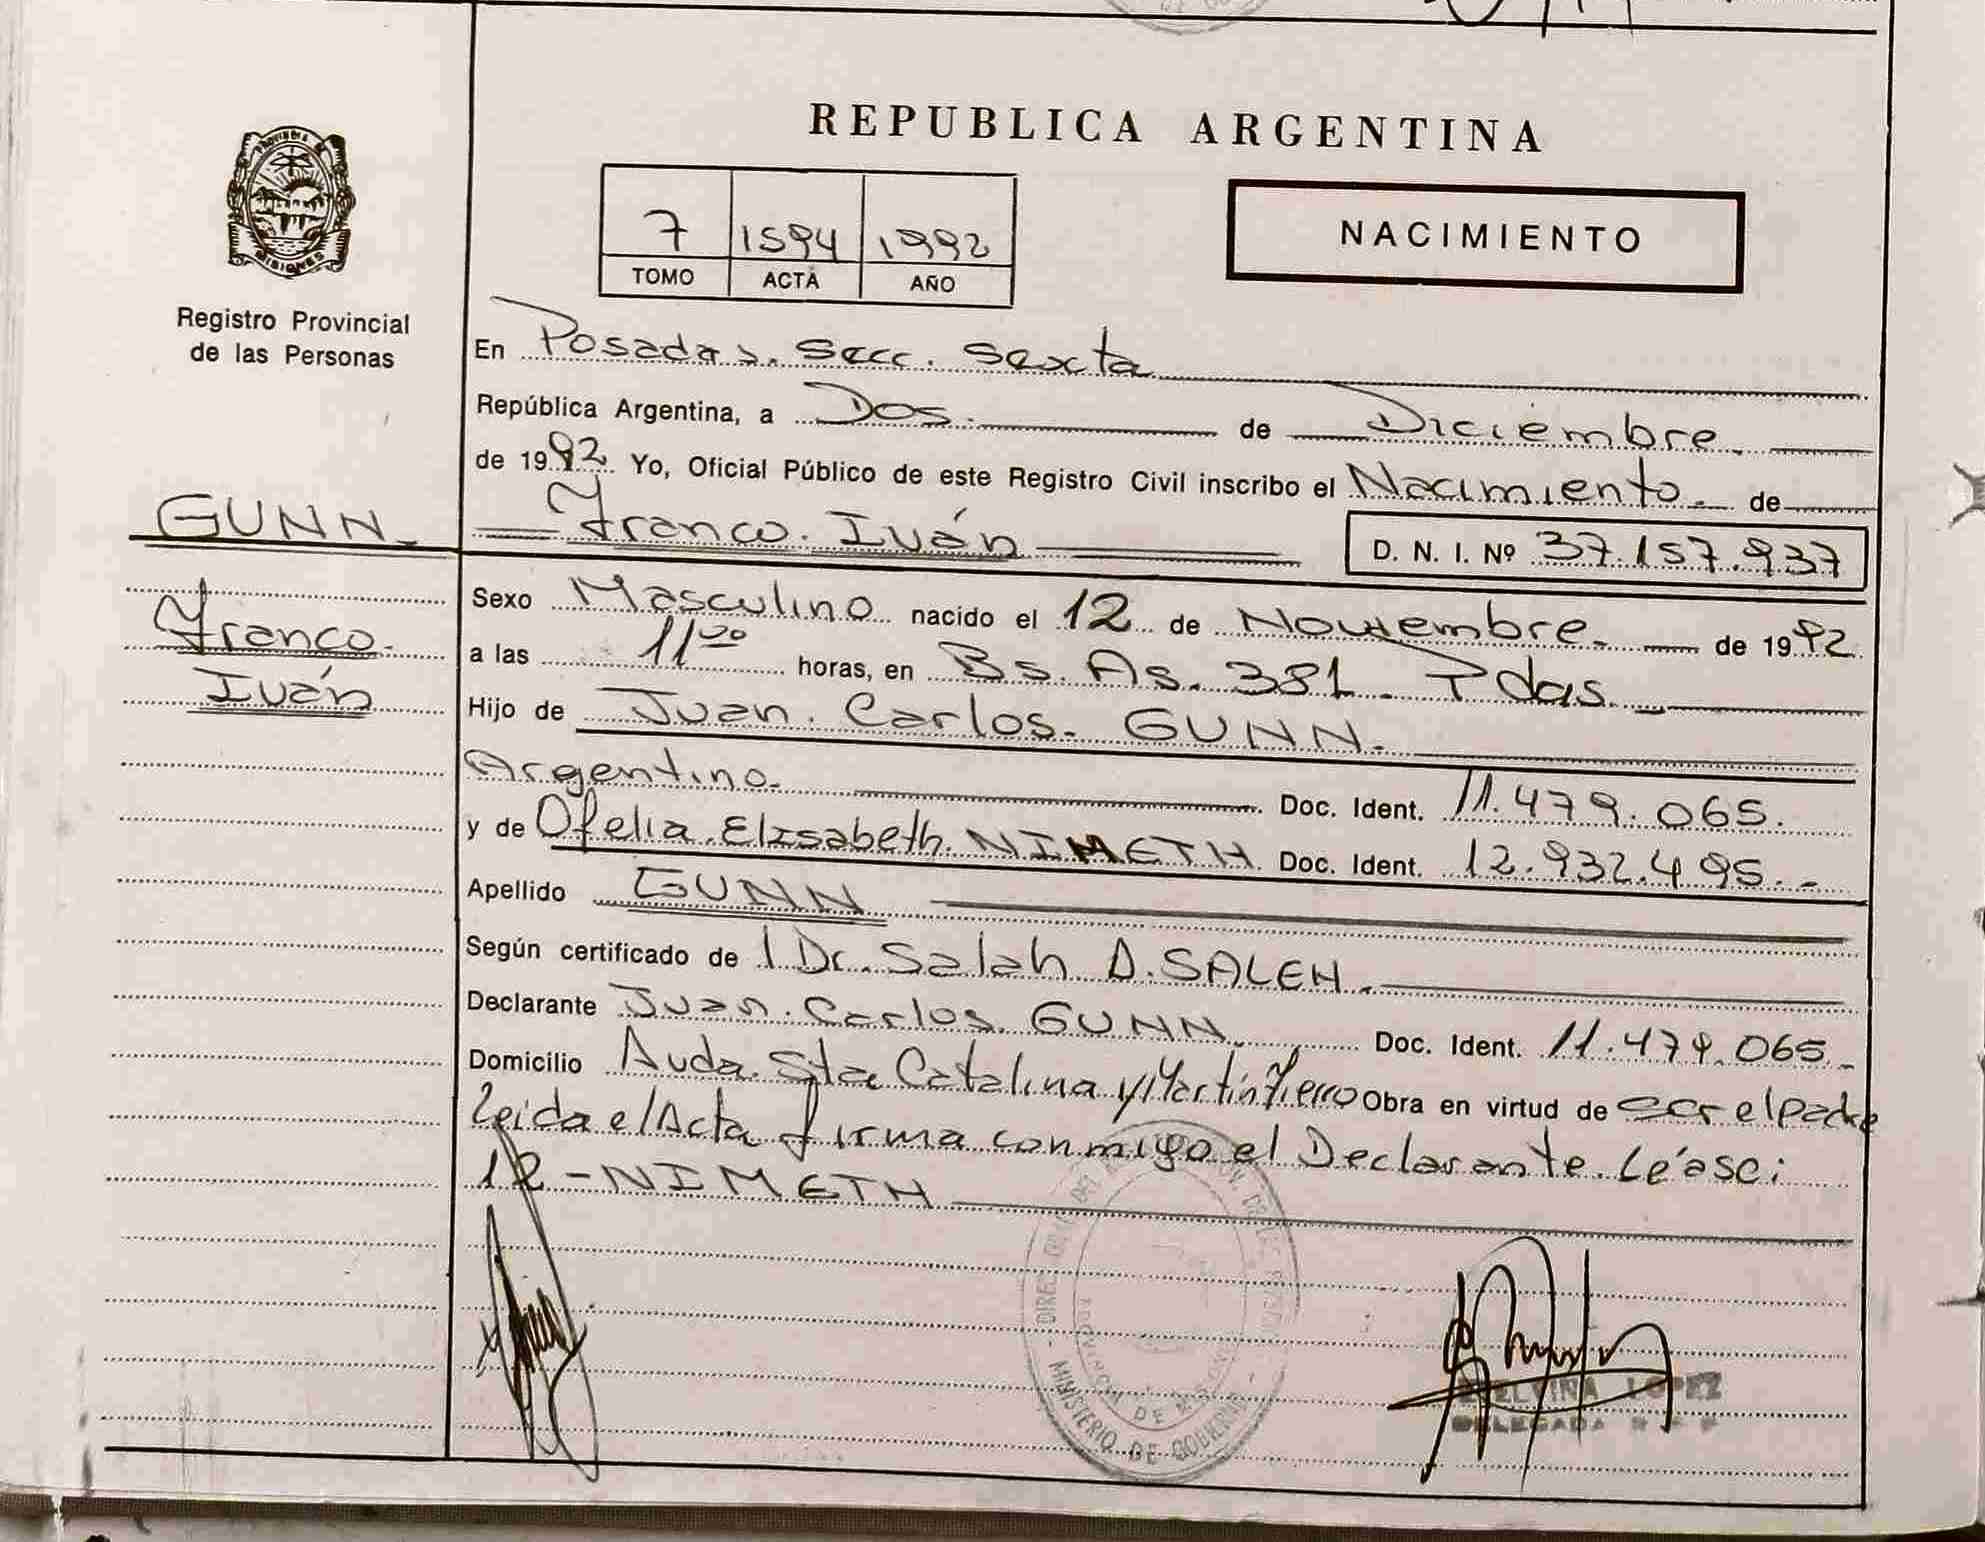 REPUBLICA ARGENTINA
PROVINCIA DE
MISIONES
Registro Provincial
de las Personas
7 1594 1992
TOMO ACTA AÑO
NACIMIENTO
En Posadas. Secc. Sexta
República Argentina, a Dos. de Diciembre
de 1992 Yo, Oficial Público de este Registro Civil inscribo el Nacimiento. de
GUNN. Franco. Iván D. N. I. Nº 37.157.937
Franco.
Iván
Sexo Masculino nacido el 12 de Noviembre. de 1992
a las 11 00 horas, en Bs. As. 381. Pdas.
Hijo de Juan. Carlos. GUNN.
Argentino. Doc. Ident. 11.479.065.
y de Ofelia. Elisabeth. NIMETH Doc. Ident. 12.932.495.-
Apellido GUNN
Según certificado de l Dr. Salah D. SALEH.
Declarante Juan. Carlos. GUNN. Doc. Ident. 11.479.065.-
Domicilio Avda. Sta Catalina y Martín Fierro Obra en virtud de ser el padre
Leida el Acta firma conmigo el Declarante. Léasc:
12-NIMETH
MINISTERIO DE GOBIERNO
PROVINCIA DE MISIONES
LOPEZ
DELEGADA